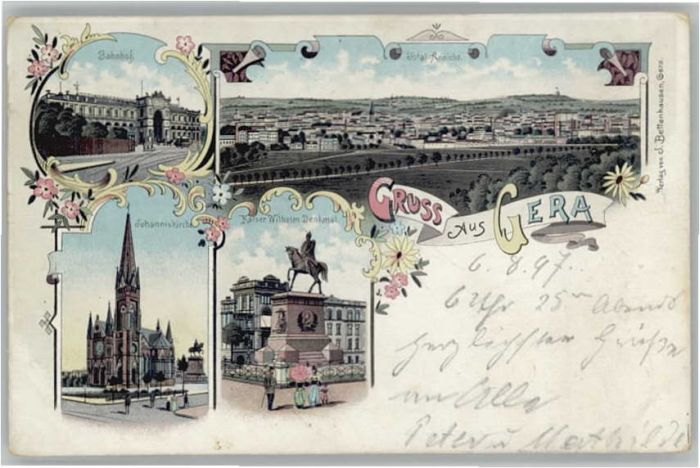 Bahnhof.
Total-Ansicht.
Verlag von J. Bettenhausen, Gera.
GRUSS AUS GERA
Johanniskirche
Kaiser Wilhelm Denkmal.
6.8.97.
6 Uhr 25 Abends
herzlichsten Grüße
an Alle
Peter u Mathilde